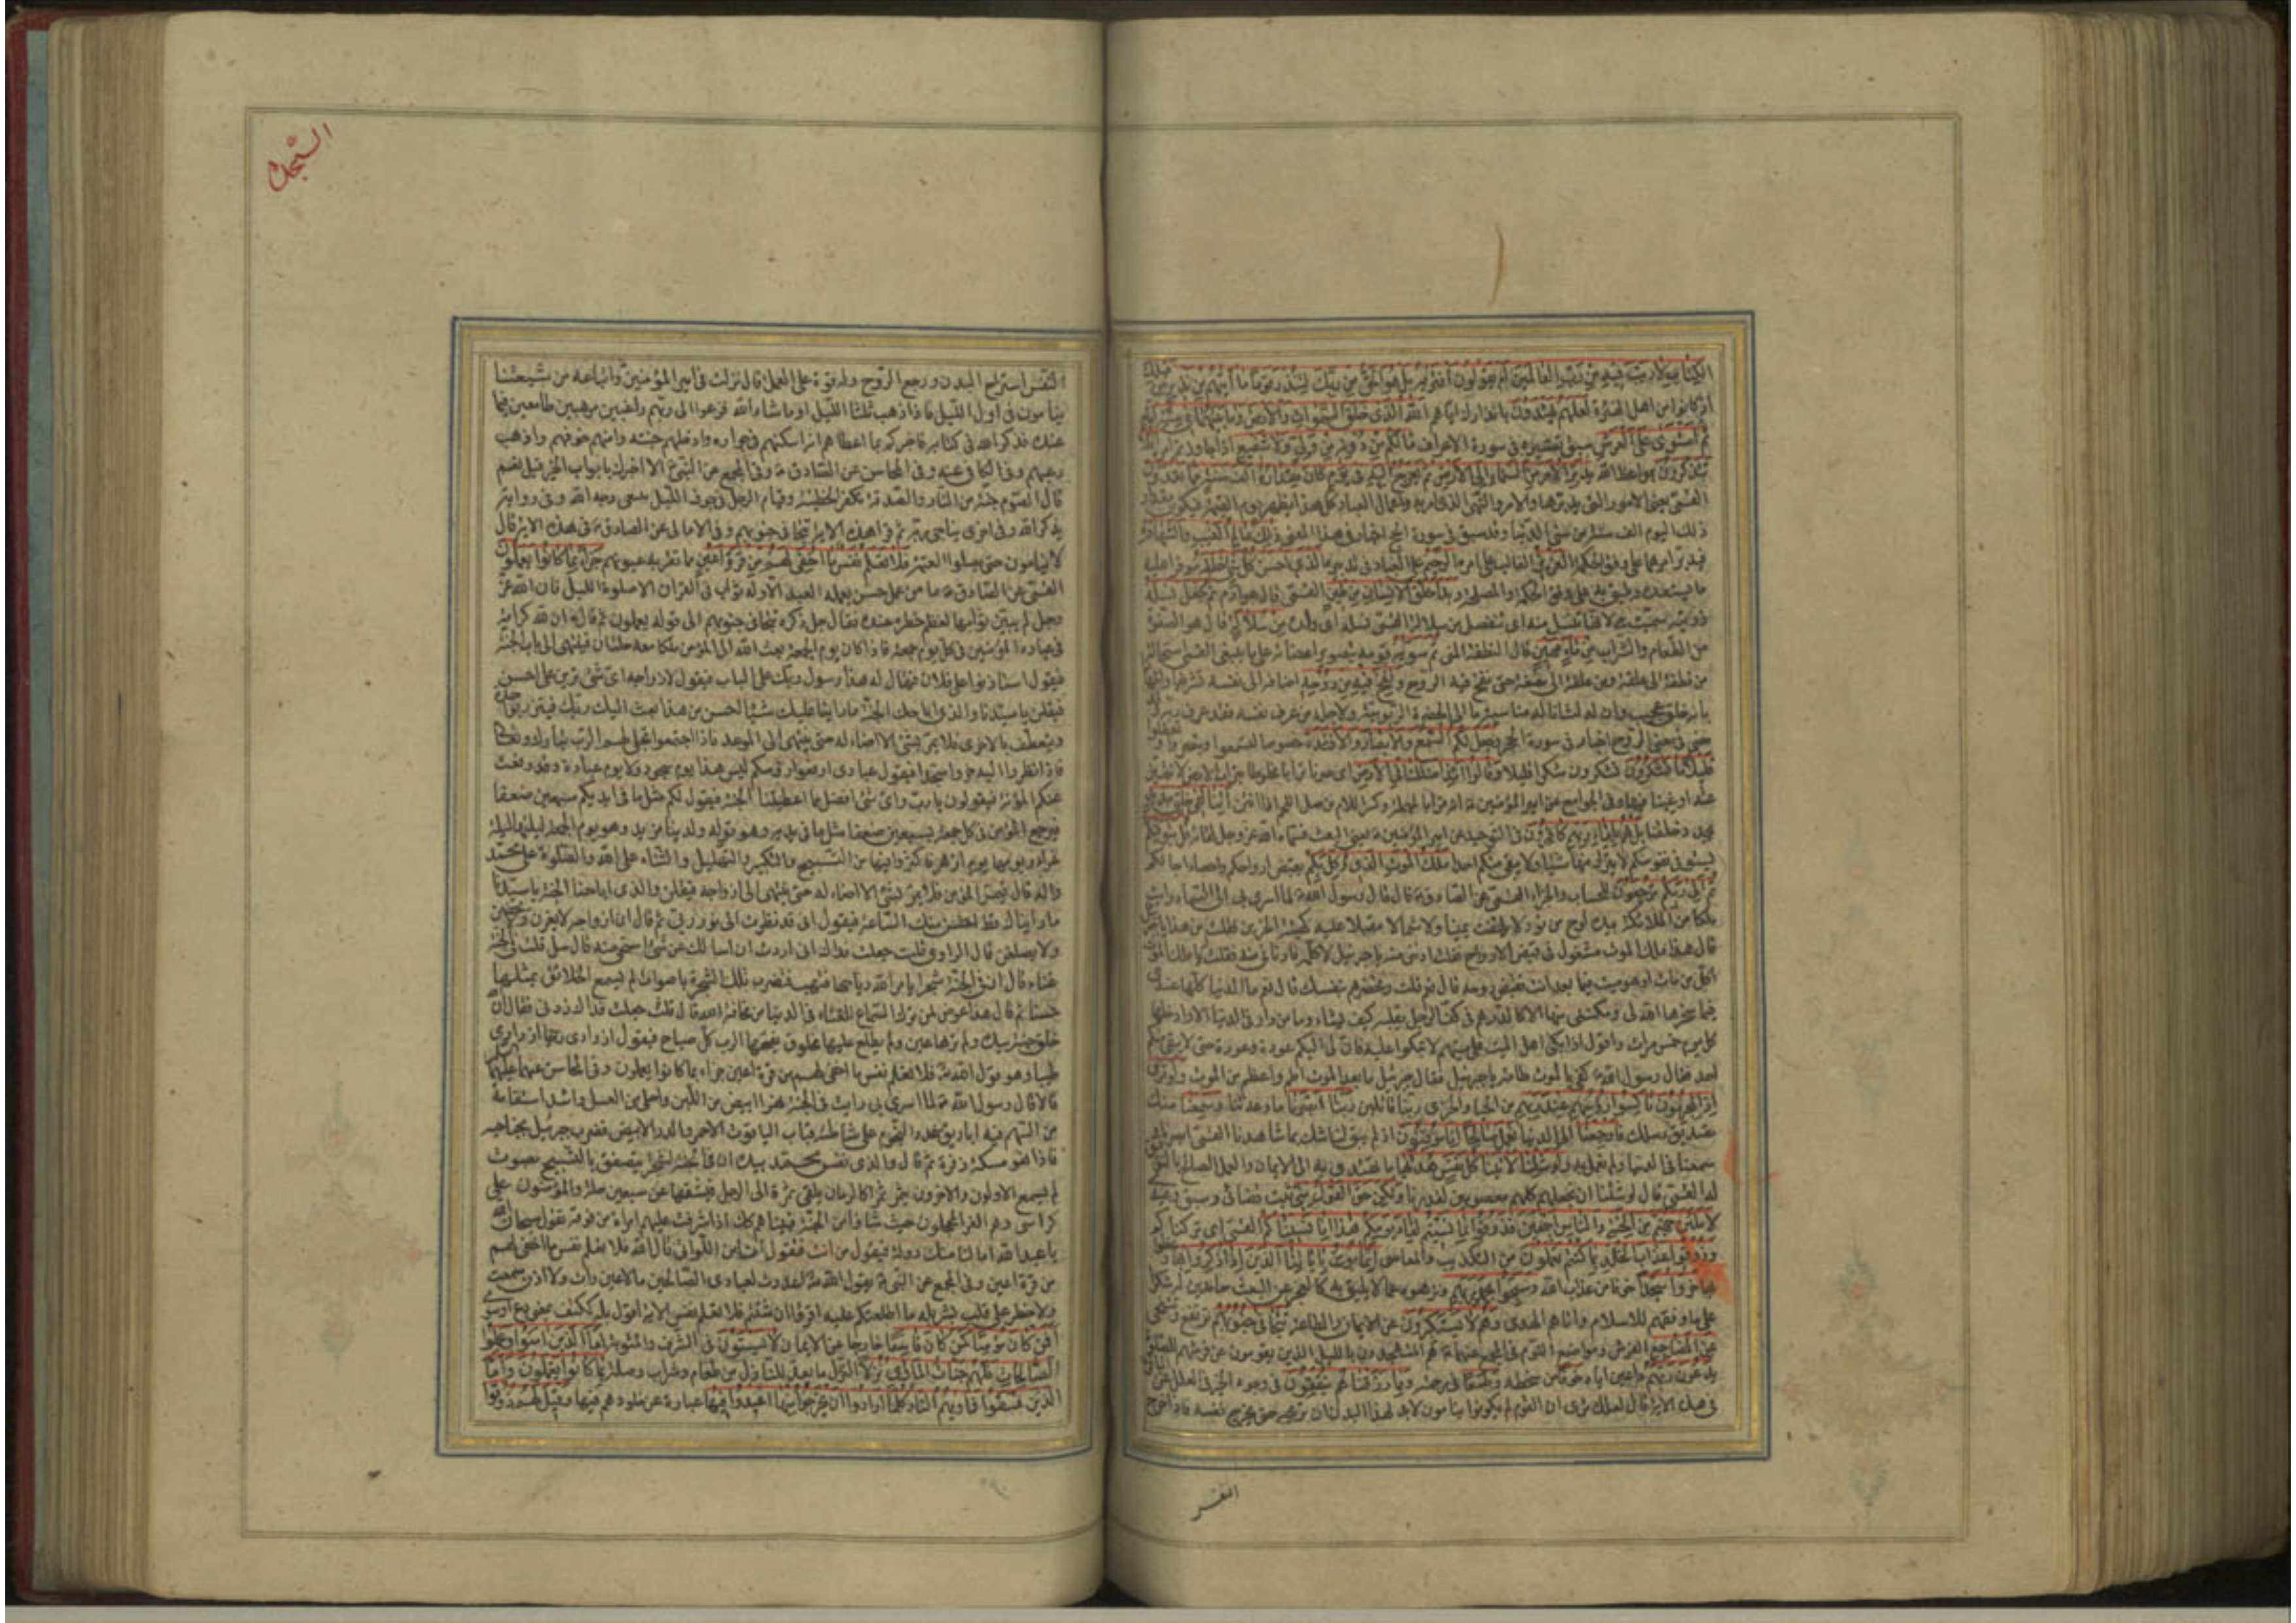 الكتاب لا ريب فيه من رب العالمين أم يقولون افتريه بل هو الحق من ربك لتنذر قوما ما أتيهم من نذير من قبلك
اذ كانوا من اهل الفترة لعلهم يهتدون بانذارك اياهم الله الذى خلق السموات والارض وما بينهما فى ستة ايام
ثم استوى على العرش سبق تفسيره فى سورة الاعراف مالكم من دونه من ولى ولا شفيع
تتذكرون بمواعظ الله يدبر الامر من السماء الى الارض ثم يعرج اليه فى يوم كان مقداره الف سنة مما تعدون
القمى يعنى الامور التى يدبرها والامر والنهى الذى امر به واعمال العباد كل هذا يظهر يوم القيمة فيكون مقدار
ذلك اليوم الف سنة من سنى الدنيا وقد سبق فى سورة الحج اخبار فى هذا المعنى ذلك عالم الغيب والشهادة
فيدبر امرهما على وفق الحكمة العزيز الغالب على امره الرحيم على العباد فى تدبيره الذى احسن كل شئ خلقه موفرا عليه
ما يستعده ويليق به على وفق الحكمة والمصلحة وبدأ خلق الانسان من طين القمى قال هو ادم ثم جعل نسله
ذريته سميت به لانها تنسل منه اى تنفصل من سلالة القمى نسله اى ولده من سلالة قال هو الصفوة
من الطعام والشراب من ماء مهين قال النطفة المنى ثم سويه قومه بتصوير اعضائه على ما ينبغى القمى استحاله
من نطفة الى علقة ومن علقة الى مضغة حتى نفخ فيه الروح ونفخ فيه من روحه اضافه الى نفسه تشريفا واظهارا
بانه خلق عجيب وان له لشانا له مناسبة ما الى الحضرة الربوبية ولاجله من عرف نفسه فقد عرف ربه
مضى فى معنى الروح اخبار فى سورة الحجر وجعل لكم السمع والابصار والافئدة خصوصا لتسمعوا وتبصروا وتعقلوا
قليلا ما تشكرون تشكرون شكرا قليلا وقالوا أئذا ضللنا فى الارض اى صرنا ترابا مخلوطا بتراب الارض لا نتميز
منه او غبنا فيها وفى الجوامع عن امير المؤمنين انه قرأ بالمهملة وكسر اللام من صل اللحم اذا انتن أئنا لفى خلق جديد
نجدد خلقنا بل هم بلقاء ربهم كافرون فى التوحيد عن امير المؤمنين يعنى البعث فسماه الله عز وجل لقائه قل يتوفيكم
يستوفى نفوسكم لا يترك منها شيئا ولا يبقى منكم احدا ملك الموت الذى وكل بكم بقبض ارواحكم واحصاء اجالكم
ثم الى ربكم ترجعون للحساب والجزاء القمى عن الصادق قال قال رسول الله لما اسرى بى الى السماء رايت
ملكا من الملائكة بيده لوح من نور لا يلتفت يمينا ولا شمالا مقبلا عليه كهيئة الحزين فقلت من هذا يا جبرئيل
قال هذا ملك الموت مشغول فى قبض الارواح فقلت ادننى منه يا جبرئيل لاكلمه فادنانى منه فقلت يا ملك الموت
اكل من مات او هو ميت فيما بعد انت تقبض روحه قال نعم قلت وتحضرهم بنفسك قال نعم ما الدنيا كلها عندى
فيما سخرها الله لى ومكننى منها الا كالدرهم فى كف الرجل يقلبه كيف يشاء وما من دار فى الدنيا الا وادخلها
كل يوم خمس مرات واقول اذا بكى اهل الميت على ميتهم لا تبكوا عليه فان لى اليكم عودة وعودة حتى لا يبقى منكم
احد فقال رسول الله كفى بالموت طامة يا جبرئيل فقال جبرئيل ما بعد الموت اطم واعظم من الموت ولو ترى
اذ المجرمون ناكسوا رؤسهم عند ربهم من الحياء والخزى ربنا قائلين ربنا ابصرنا ما وعدتنا وسمعنا منك
تصديق رسلك فارجعنا الى الدنيا نعمل صالحا انا موقنون اذ لم يبق لنا شك بما شاهدنا القمى ابصرنا
سمعنا فى الدنيا ولم نعمل به ولو شئنا لاتينا كل نفس هديها ما يهتدى به الى الايمان والعمل الصالح بالتوفيق
له القمى قال لو شئنا ان نجعلهم كلهم معصومين لقدرنا ولكن حق القول منى ثبت قضائى وسبق وعيدى
لاملئن جهنم من الجنة والناس اجمعين فذوقوا بما نسيتم لقاء يومكم هذا انا نسيناكم القمى اى تركناكم
وذوقوا عذاب الخلد بما كنتم تعملون من التكذيب والمعاصى انما يؤمن باياتنا الذين اذا ذكروا بها وعظوا
بها خروا سجدا خوفا من عذاب الله وسبحوا بحمد ربهم ونزهوه عما لا يليق به كالعجز عن البعث حامدين له شكرا
على ما وفقهم للاسلام واتاهم الهدى وهم لا يستكبرون عن الايمان والطاعة تتجافى جنوبهم ترتفع وتتنحى
عن المضاجع الفرش ومواضع النوم فى المجمع عنهما هم المتهجدون بالليل الذين يقومون عن فرشهم للصلوة
يدعون ربهم داعين اياه خوفا من سخطه وطمعا فى رحمته ومما رزقناهم ينفقون فى وجوه الخير فى العلل عن الباقر
فى هذه الاية قال لعلك ترى ان القوم لم يكونوا ينامون لابد لهذا البدن ان تريحه حتى يخرج نفسه فاذا خرج
النفس
السجدة
النفس استراح البدن ورجع الروح وله قوة على العمل قال نزلت فى امير المؤمنين واتباعه من شيعتنا
ينامون فى اول الليل فاذا ذهب ثلثا الليل او ما شاء الله فزعوا الى ربهم راغبين مرهبين طامعين فيما
عنده فذكر الله فى كتابه فاخبركم بما اعطاهم انه اسكنهم فى جواره وادخلهم جنته وامنهم خوفهم واذهب
رعبهم وفى الكافى عنه وفى المحاسن عن الصادق وفى المجمع عن النبى الا اخبرك بابواب الخير قيل نعم
قال الصوم جنة من النار والصدقة تكفر الخطيئة وقيام الرجل فى جوف الليل يبتغى وجه الله وفى رواية
يذكر الله وفى اخرى يناجى ربه ثم قرأ هذه الاية تتجافى جنوبهم وفى الامالى عن الصادق فى هذه الاية قال
لا ينامون حتى يصلوا العتمة فلا تعلم نفس ما اخفى لهم من قرة اعين ما تقر به عيونهم جزاء بما كانوا يعملون
القمى عن الصادق ما من عمل حسن يعمله العبد الا وله ثواب فى القران الا صلوة الليل فان الله عز
وجل لم يبين ثوابها لعظم خطره عنده فقال جل ذكره تتجافى جنوبهم الى قوله يعملون ثم قال ان لله كرامة
فى عباده المؤمنين فى كل يوم جمعة فاذا كان يوم الجمعة بعث الله الى المؤمن ملكا معه حلتان فينتهى الى باب الجنة
فيقول استاذنوا لى على فلان فيقال له هذا رسول ربك على الباب فيقول لازواجه اى شئ ترين على احسن
فيقلن يا سيدنا والذى اباحك الجنة ما راينا عليك شيئا احسن من هذا بعث اليك ربك فيتزر بواحدة
ويتعطف بالاخرى فلا يمر بشئ الا اضاء له حتى ينتهى الى الموعد فاذا اجتمعوا تجلى لهم الرب تبارك وتعالى
فاذا نظروا اليه خروا سجدا فيقول عبادى ارفعوا رؤسكم ليس هذا يوم سجود ولا يوم عبادة وقد رفعت
عنكم المؤنة فيقولون يا رب واى شئ افضل مما اعطيتنا الجنة فيقول لكم مثل ما فى ايديكم سبعين ضعفا
فيرجع المؤمن فى كل جمعة بسبعين ضعفا مثل ما فى يديه وهو قوله ولدينا مزيد وهو يوم الجمعة ليلتها ليلة
غراء ويومها يوم ازهر فاكثروا فيها من التسبيح والتكبير والتهليل والثناء على الله والصلوة على محمد
واله قال فيمر المؤمن فلا يمر بشئ الا اضاء له حتى ينتهى الى ازواجه فيقلن والذى اباحنا الجنة يا سيدنا
ما رايناك قط احسن منك الساعة فيقول انى قد نظرت الى نور ربى ثم قال ان ازواجه لا يغرن ولا يحضن
ولا يصلفن قال الراوى قلت جعلت فداك انى اردت ان اسالك عن شئ استحيى منه قال سل قلت فى الجنة
غناء قال ان فى الجنة شجرا يامر الله رياحها فتهب فتضرب تلك الشجرة باصوات لم يسمع الخلائق بمثلها
حسنا ثم قال هذا عوض لمن ترك السماع للغناء فى الدنيا من مخافة الله قال قلت جعلت فداك زدنى فقال ان الله
خلق جنة بيده ولم ترها عين ولم يطلع عليها مخلوق يفتحها الرب كل صباح فيقول ازدادى ريحا ازدادى
طيبا وهو قول الله فلا تعلم نفس ما اخفى لهم من قرة اعين جزاء بما كانوا يعملون وفى المحاسن عنهما عليهما السلام
قالا قال رسول الله لما اسرى بى رايت فى الجنة نهرا ابيض من اللبن واحلى من العسل واشد استقامة
من السهم فيه اباريق عدد النجوم على شاطئه قباب الياقوت الاحمر والدر الابيض فضرب جبرئيل بجناحيه
فاذا هو مسكة ذفرة ثم قال والذى نفس محمد بيده ان فى الجنة لشجرا يتصفق بالتسبيح بصوت
لم يسمع الاولون والاخرون يثمر ثمرا كالرمان يلقى ثمرة الى الرجل فيشقها عن سبعين حلة والمؤمنون على
كراسى وهم الغر المحجلون حيث شاؤا من الجنة فبيناهم كك اذ اشرفت عليهم امراة من فوقه تقول سبحان الله
يا عبد الله اما لنا منك دولة فيقول من انت فتقول انا من اللواتى قال الله فلا تعلم نفس ما اخفى لهم
من قرة اعين وفى المجمع عن النبى يقول الله اعددت لعبادى الصالحين ما لا عين رات ولا اذن سمعت
ولا خطر على قلب بشر بله ما اطلعتكم عليه اقرؤا ان شئتم فلا تعلم نفس الاية اقول بله ككيف بمعنى دع او سوى
أفمن كان مؤمنا كمن كان فاسقا خارجا عن الايمان لا يستوون فى الشرف والمثوبة اما الذين امنوا وعملوا
الصالحات فلهم جنات الماوى نزلا النزل ما يعد للنازل من طعام وشراب وصلة بما كانوا يعملون واما
الذين فسقوا فماويهم النار كلما ارادوا ان يخرجوا منها اعيدوا فيها عبارة عن خلودهم فيها وقيل لهم ذوقوا